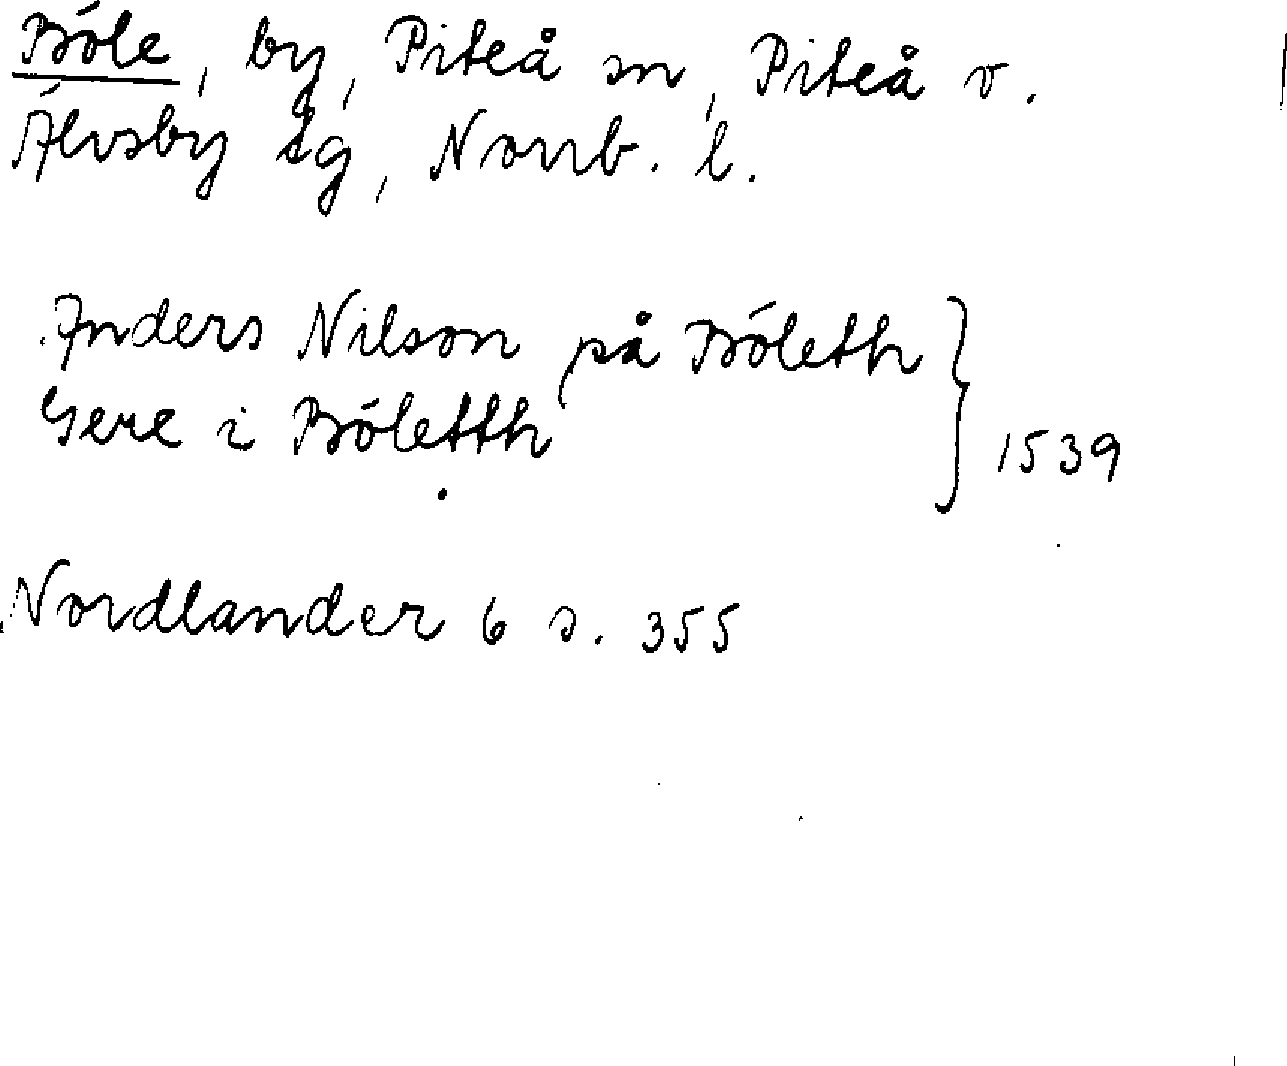 Böle, by, Piteå sn, Piteå o.
Älvsby tg, Norrb. l.
Anders Nilson på Böleth } 1539
Gere i Böletth
Nordlander 6 s. 355